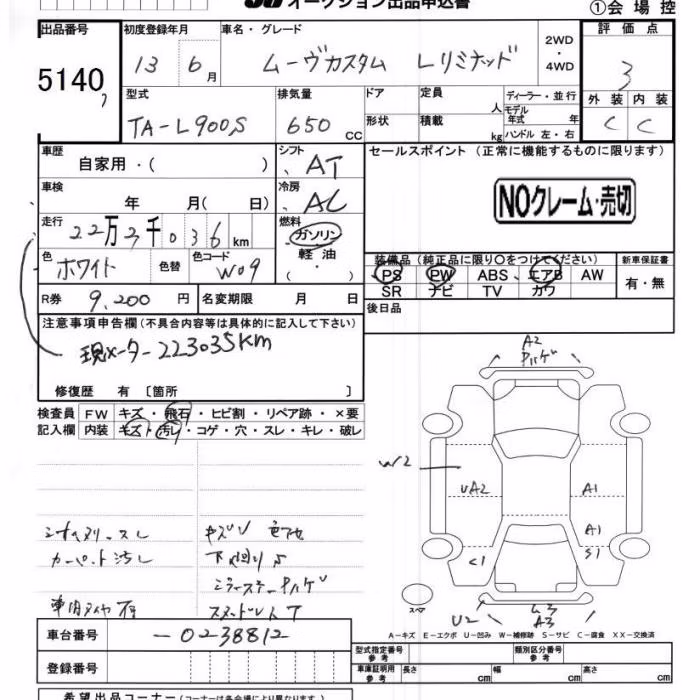 オークション出品申込書
①会場控
出品番号 初度登録年月 車名・グレード 2WD ・ 4WD 評価点
5140 13 6月 ムーヴカスタム Lリミテッド 3
外装 内装
C C
型式 排気量 ドア 定員 人 ディーラー・並行
モデル年式 年
TA-L900S 650 CC 形状 積載 kg ハンドル 左・右
車歴 シフト セールスポイント (正常に機能するものに限ります)
自家用・( ) AT
車検 年 月( 日) 冷房 AC
NOクレーム・売切
走行 22万3千036km 燃料 ガソリン
軽油・( )
色 ホワイト 色替 色コード W09
装備品 (純正品に限り○をつけてください) 新車保証書
PS PW ABS エアB AW 有・無
SR ナビ TV カワ
R券 9,200円 名変期限 月 日 後日品
注意事項申告欄 (不具合内容等は具体的に記入して下さい)
現メーター223035KM
修復歴 有 〔箇所 〕
A2
検査員 FW キズ・飛石・ヒビ割・リペア跡・×要
記入欄 内装 キズ・汚レ・コゲ・穴・スレ・キレ・破レ
W2
UA2 A1
A1
C1 S1
カーペット汚レ
スペア
U2 A3
車台番号 -0238812
A-キズ E-エクボ U-凹み W-補修跡 S-サビ C-腐食 XX-交換済
型式指定番号 参考 類別区分番号 参考
登録番号 車庫証明用 参考 長さ cm 幅 cm 高さ cm
希望出品コーナー